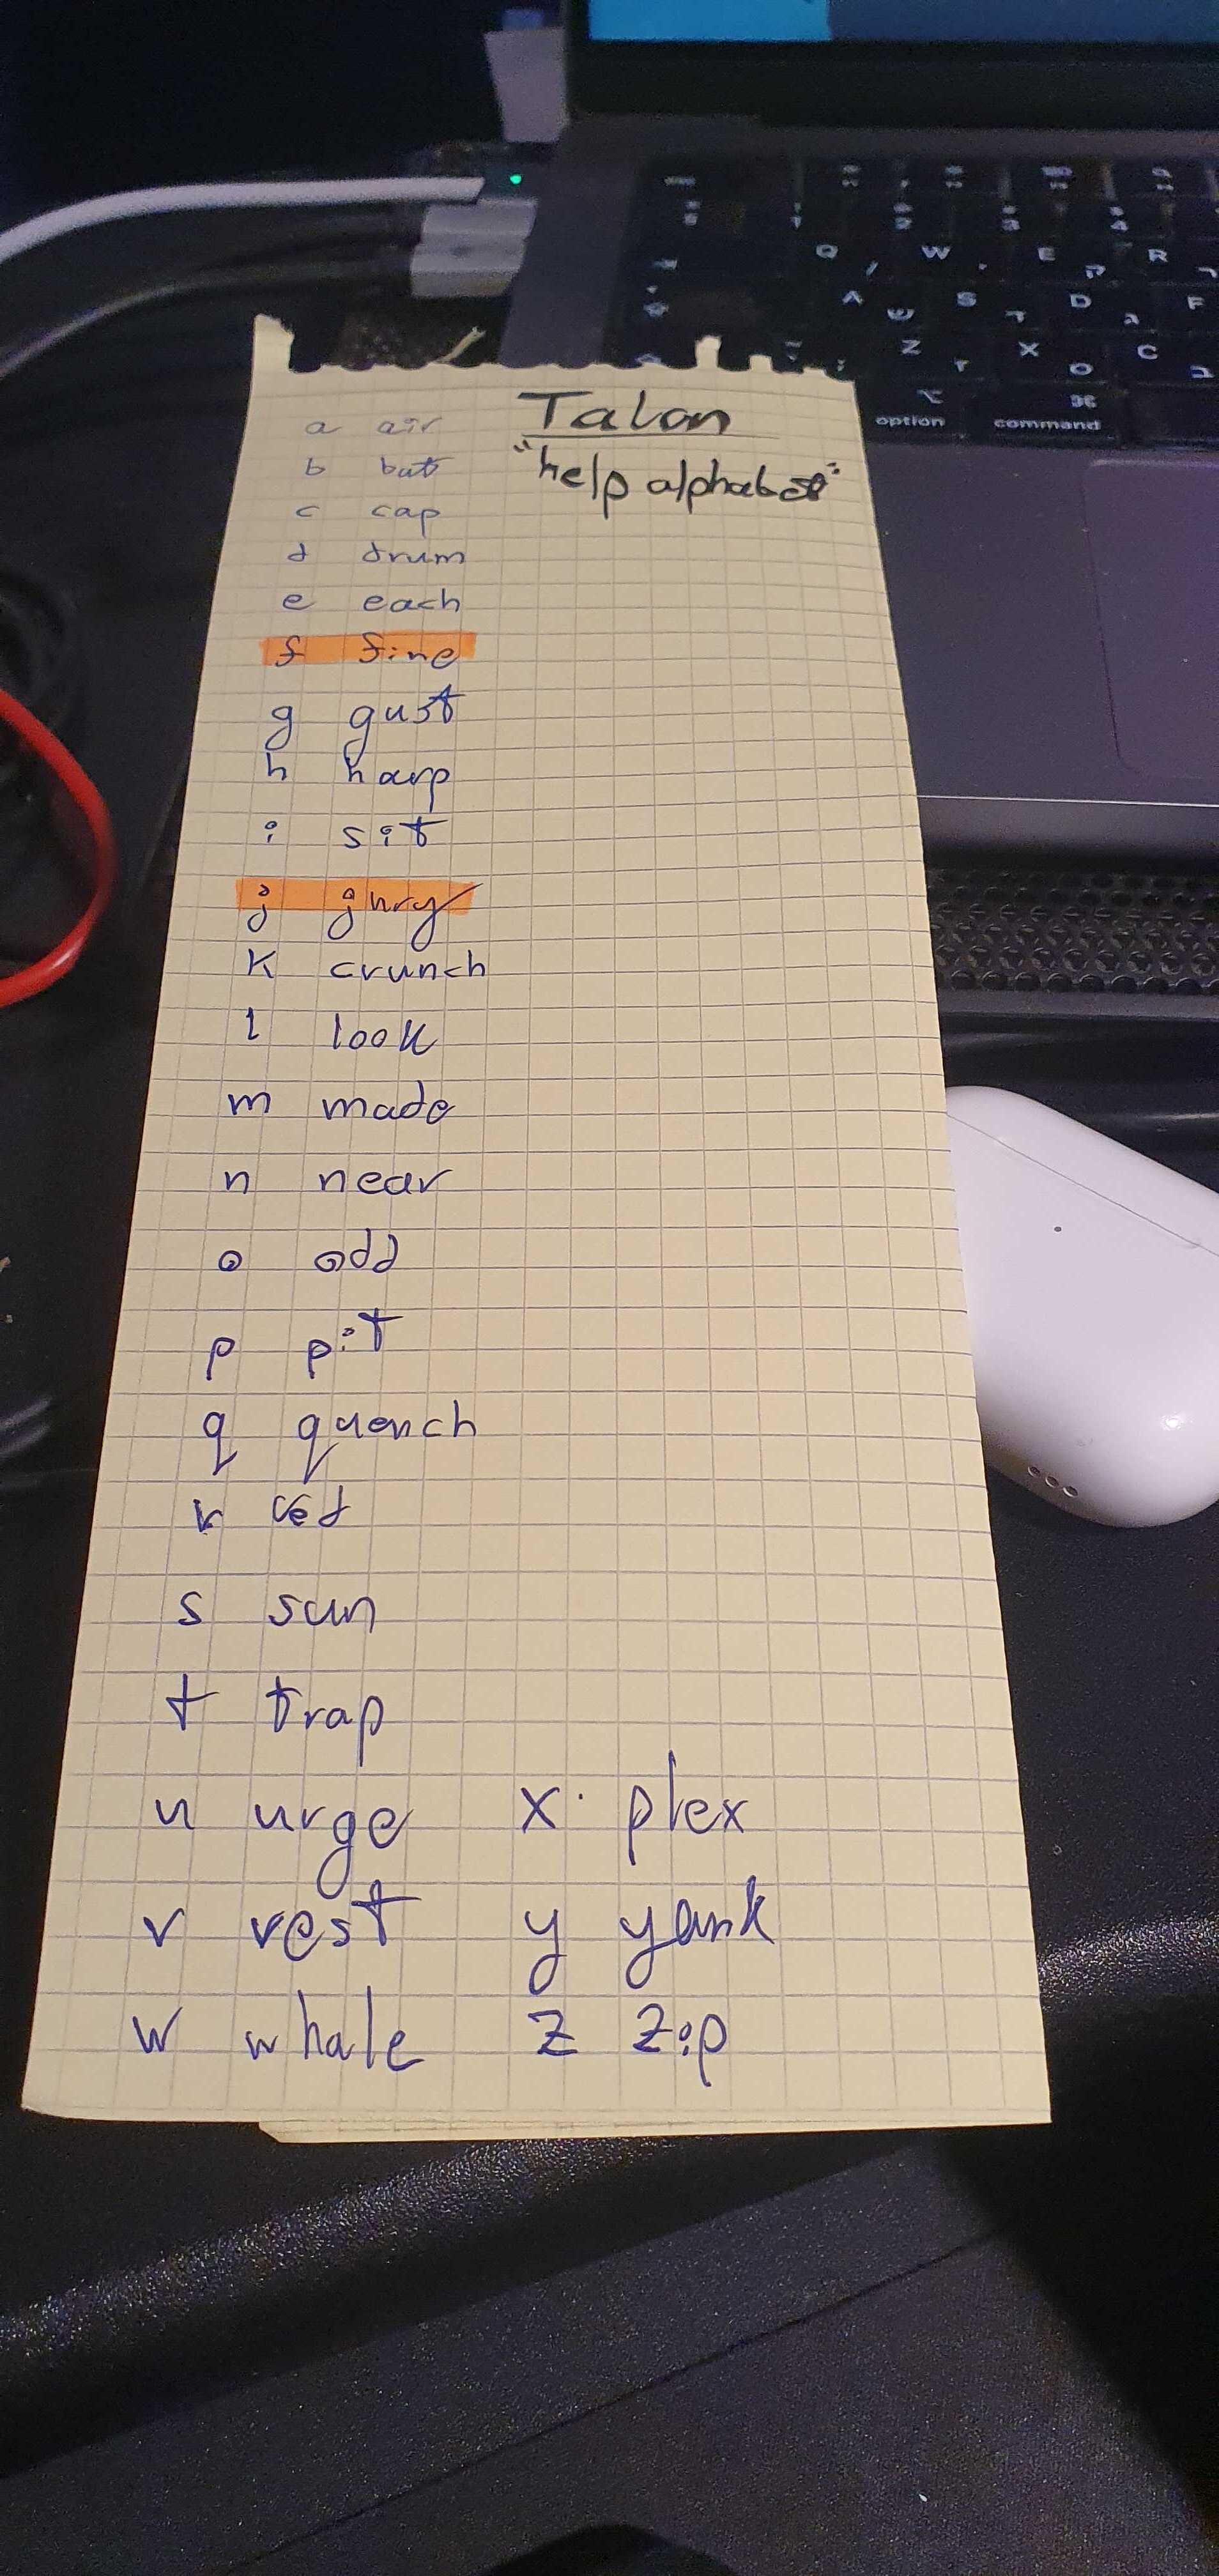 Talon
"help alphabet"
a air
b bat
c cap
d drum
e each
f fine
g gust
h harp
i sit
j jury
k crunch
l look
m made
n near
o odd
p pit
q quench
r red
s sun
t trap
u urge
v vest
w whale
x plex
y yank
z zip
1 2 3 4
Q / W ' E ק R ר
A ש S ד D ג F
Z ז X ס C ב
option command ⌘